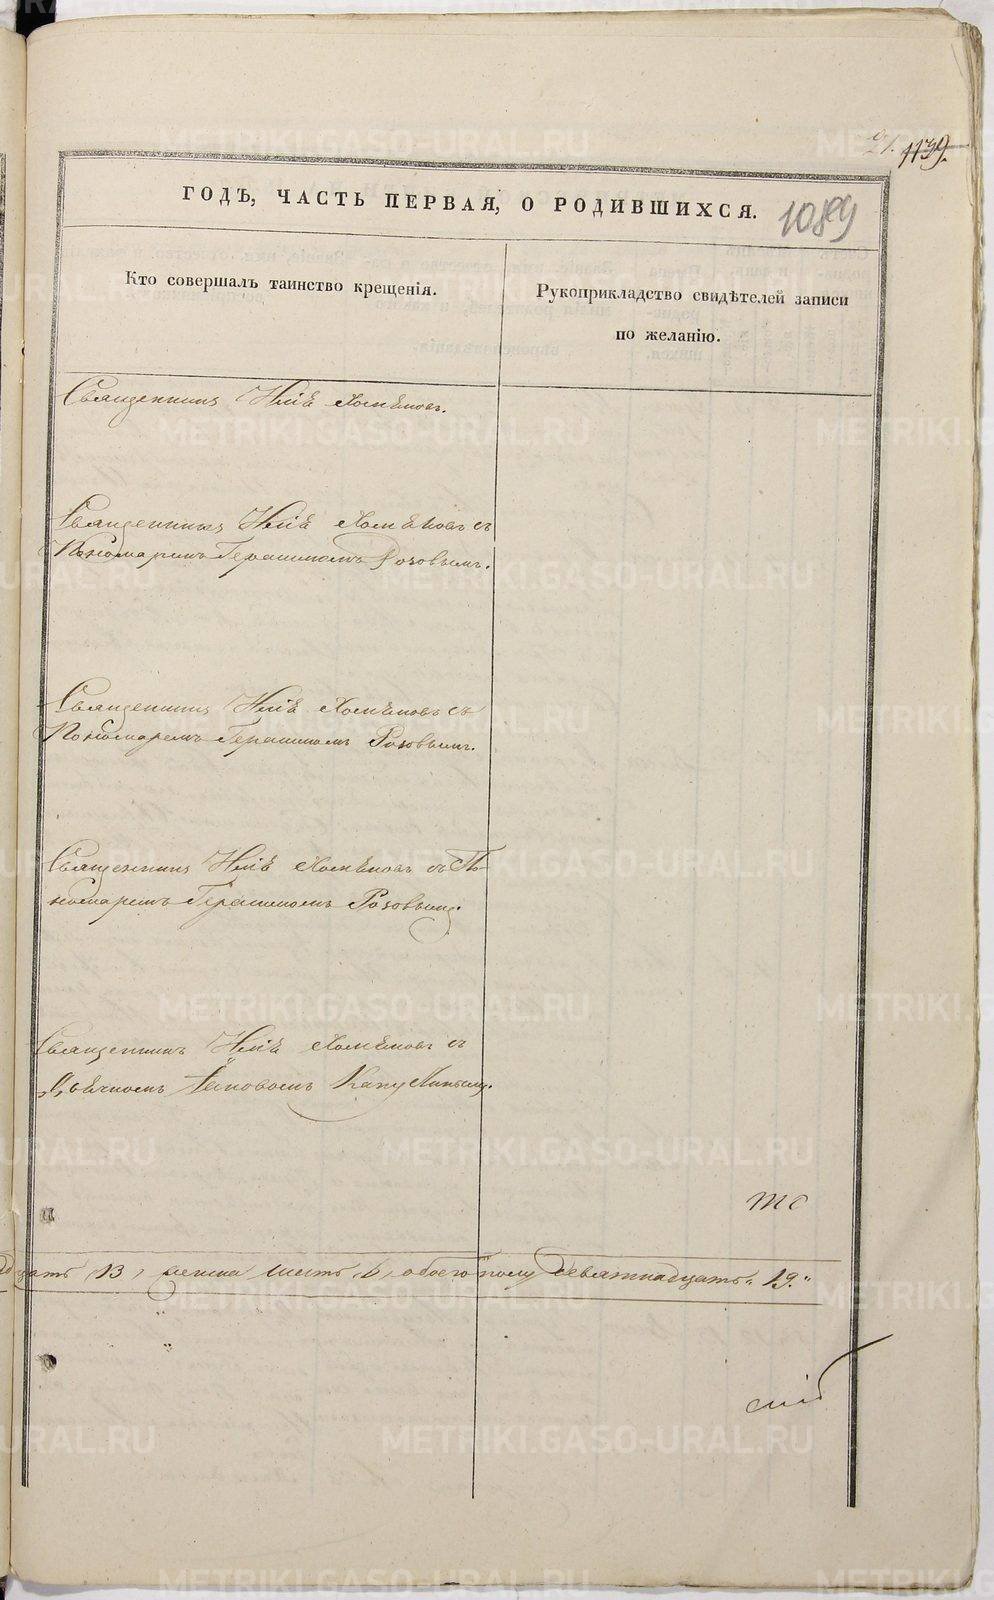 21. 1139.
ГОДЪ, ЧАСТЬ ПЕРВАЯ, О РОДИВШИХСЯ.
1089
Кто совершалъ таинство крещенія.
Рукоприкладство свидѣтелей записи
по желанію.
Священникъ Илiя Хомѣновъ.
Священникъ Илiя Хомѣновъ съ
Пономаремъ Герасимомъ Розовымъ.
Священникъ Илiя Хомѣновъ съ
Пономаремъ Герасимомъ Розовымъ.
Священникъ Илiя Хомѣновъ съ По-
номаремъ Герасимомъ Розовымъ.
Священникъ Илiя Хомѣновъ съ
Дьячкомъ Іаковомъ
цать 13, женска шесть 6, обоего полу девятнадцать 19.
METRIKI.GASO-URAL.RU